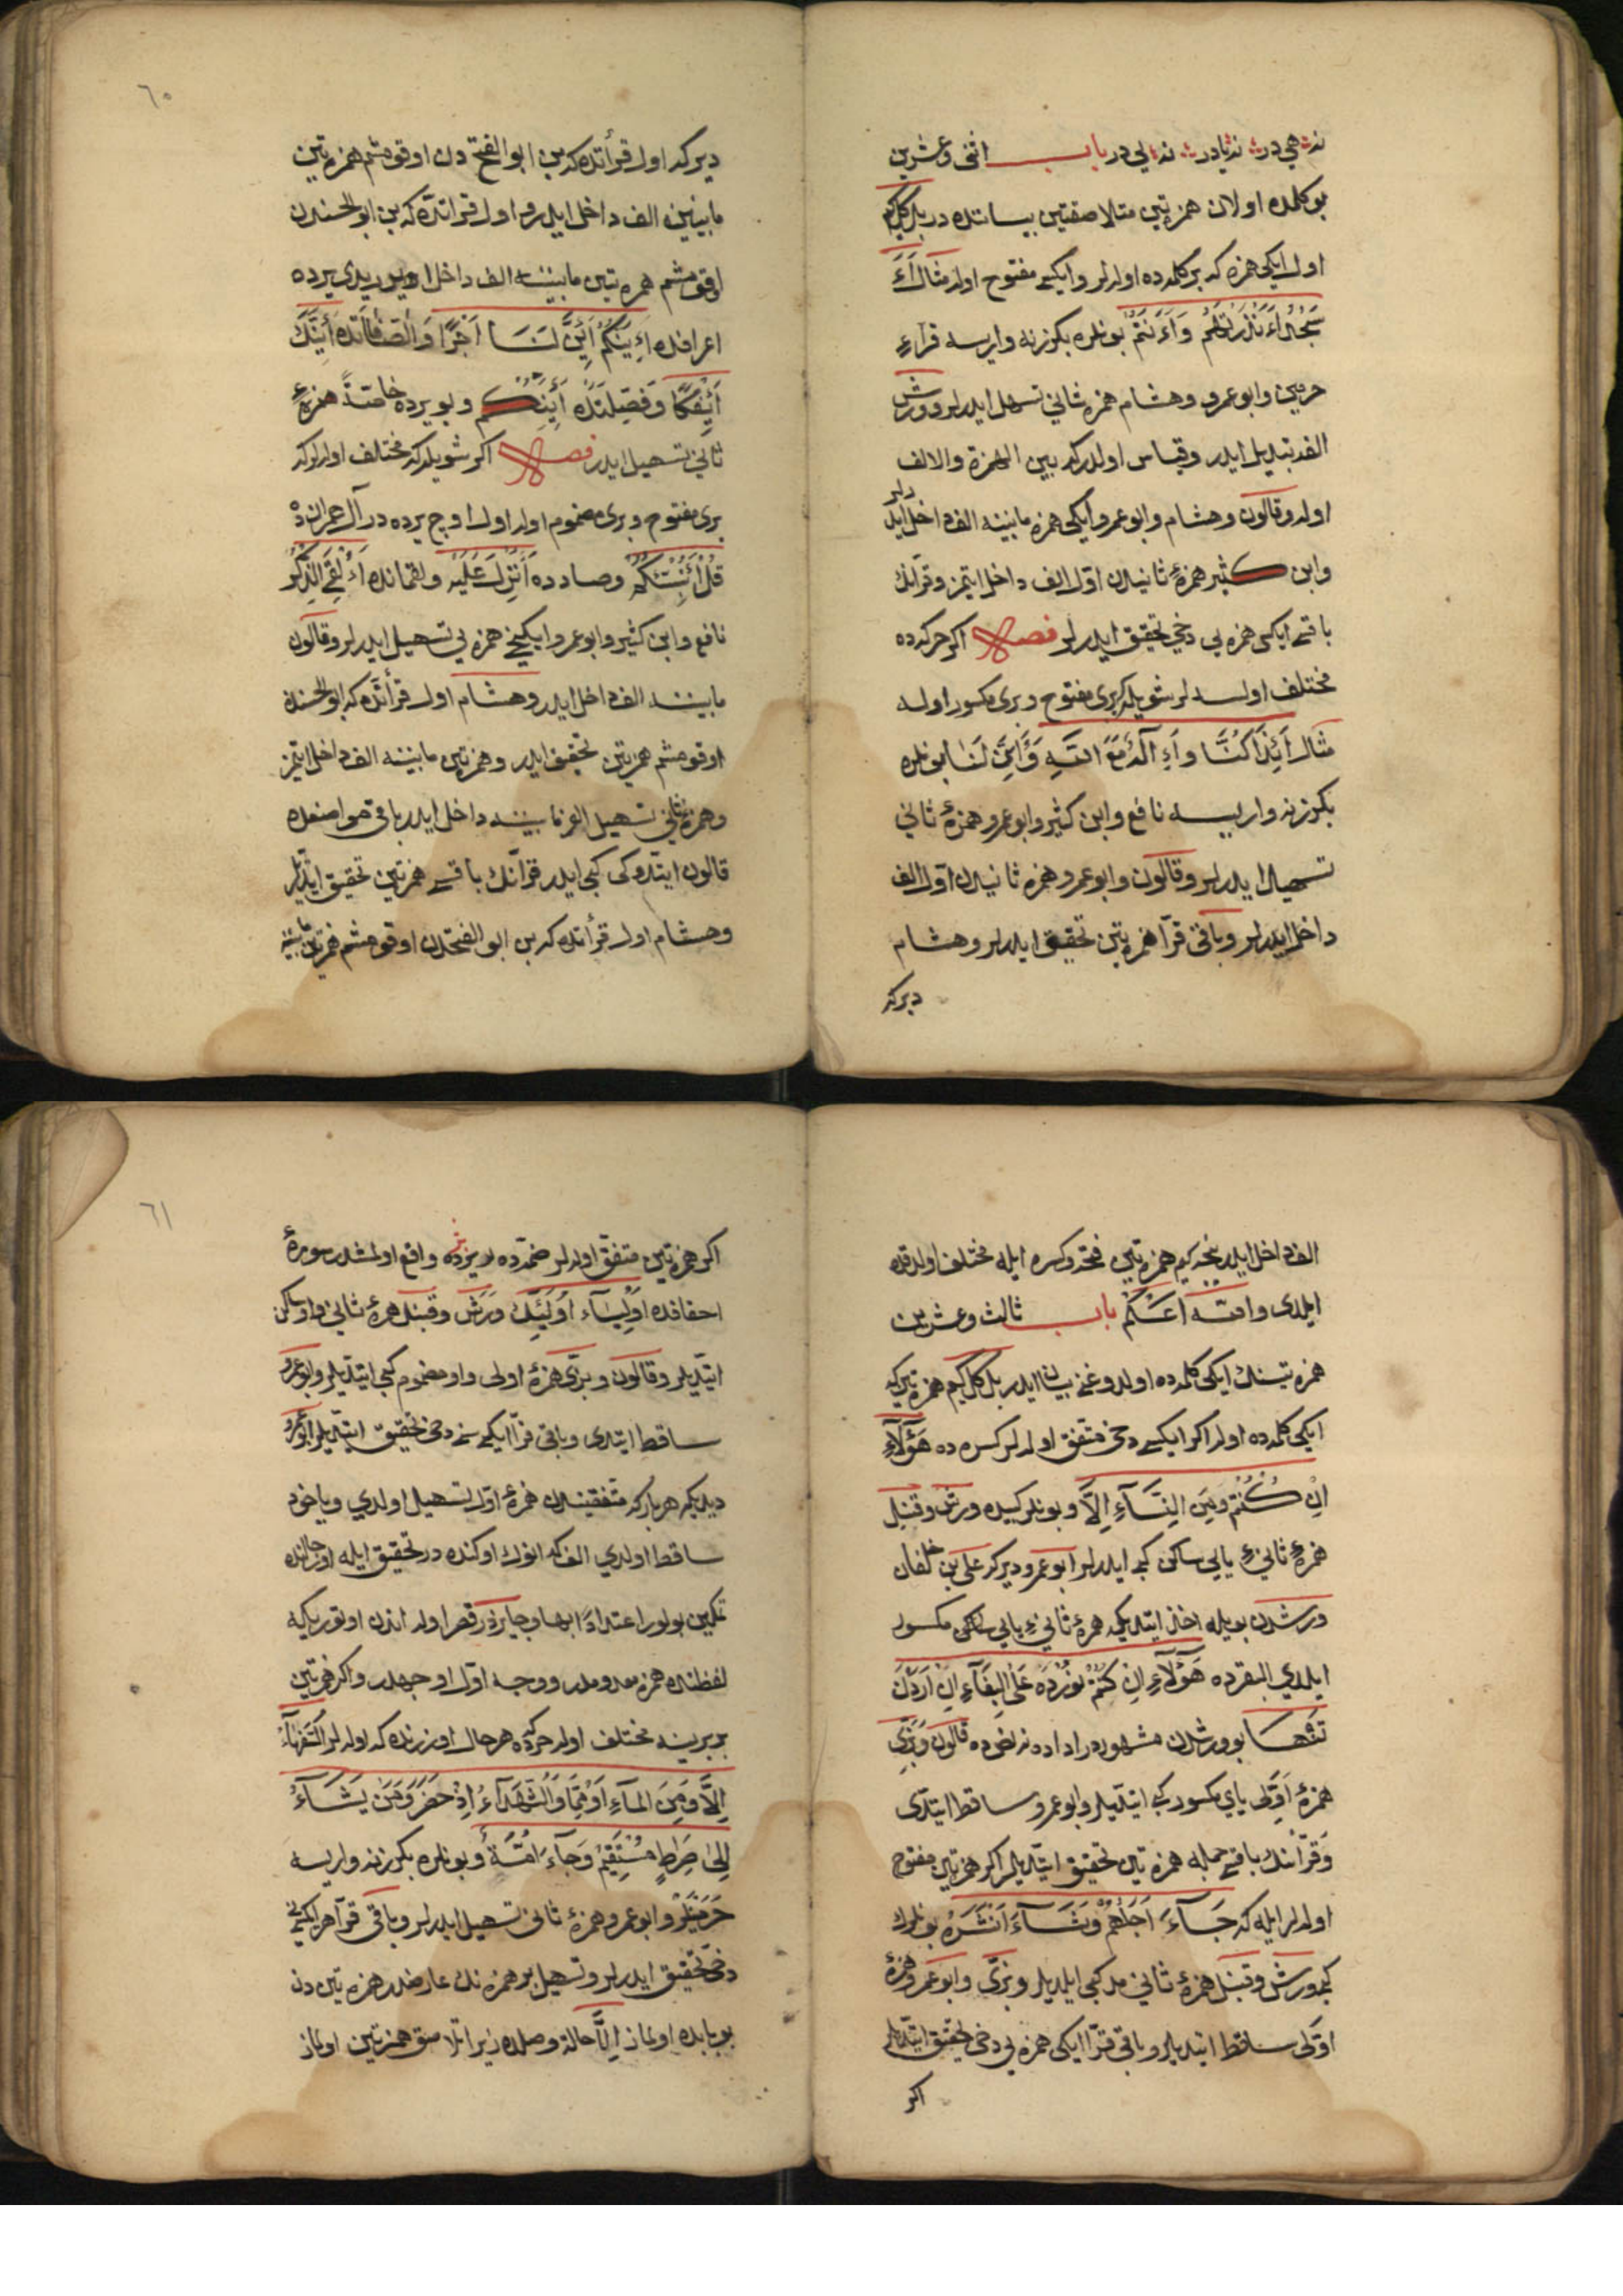 نه هی در نه یا در نه لی در باب اثنی وعشرین
بو كلمده اولان همزتین متلاصقتین بیاننده در بلكل كم
اول ایكی همزه كه بر كلمده اولدلر وایكیسی مفتوح اولد مثال ءَاَ
سَجُدُ ءَاَنْذَرْتَهُمْ وَءَاَنْتُمْ بونلره بكزر نه واریسه قراءِ
حرمین وابو عمرو وهشام همزه ثانی تسهیل ایدرلر وورش
الفه تبدیل ایدر وقیاس اولدركه بین الهمزة والالف
اولد وقالون وهشام وابو عمرو ایكی همزه مابینه الف داخل ایدرلر
وابن كثیر همزهٔ ثانیدن اوّل الف داخل ایتمز وقرانك
باقیسی ایكی همزه یی دخی تحقیق ایدرلر فصل اكر حركده
مختلف اولسه لر شویله كه بری مفتوح وبری مكسور اوله
مثال اَئِذَا كُنَّا وَاَءِلٰهٌ مَعَ اللّٰهِ وَاَئِنَّ لَنَا بونلره
بكزر نه واریسه نافع وابن كثیر وابو عمرو همزهٔ ثانی
تسهیل ایدرلر وقالون وابو عمرو همزه ثانیدن اوّل الف
داخل ایدرلر وباقی قرآ همزتین تحقیق ایدرلر وهشام
دیركه
دیركه اول قرأتده كه بن ابو الفتح دن اوقومشم همزتین
مابینین الف داخل ایدر و اول قراتده كه بن ابو الحسندن
اوقومشم همزتین مابینه الف داخل یدی یرده
اعرافده اَءِنَّكُمْ اَئِنَّ لَنَا اَجْرًا وَالصّٰفّٰاتده اَئِنَّكَ
اَئِفْكًا وَفصّلتده اَئِنَّكُمْ وبو یرده خاصّةً همزهٔ
ثانی تسهیل ایدر فصل اكر شویله كه مختلف اولدلركه
بری مفتوح وبری مضموم اولد اول اوچ یرده در آل عمران ده
قُلْ اَؤُنَبِّئُكُمْ وصادده اَءُنْزِلَ عَلَیْهِ وقمرده اَءُلْقِیَ الذِّكْرُ
نافع وابن كثیر وابو عمرو ایكنجی همزه یی تسهیل ایدرلر وقالون
مابینه الف داخل ایدر وهشام اول قرأتده كه ابو الحسندن
اوقومشم همزتین تحقیق ایدر وهمزتین مابینه الف داخل ایتمز
وهمزهٔ ثانی تسهیل الف مابینه داخل ایدر باقی مواضعده
قالون ایتدوكی كبی ایدر قرّانك باقیسی همزتین تحقیق ایدرلر
وهشام اول قرأتده كه بن ابو الفتحدن اوقومشم همزتین مابینه
الف داخل ایدر نجه كیم همزتین فتحه وكسره ایله مختلف اولدقده
ایلدی والله اعلم باب ثالث وعشرین
همزتینك ایكی كلمده اولدوغنی بیان ایدر بل كل كیم همزتین كه
ایكی كلمده اولد اكر ایكیسی دخی متفق اولدلر كسره ده هٰؤُلَآءِ
اِنْ كُنْتُمْ وَمِنَ النِّسَآءِ اِلَّا وبونلر كبیده ورش وقنبل
همزهٔ ثانیٔ یایی ساكن كبی ایدرلر ابو عمرو دیركه علی بن خلفان
ورشدن بویله اخذ ایتدیكه همزهٔ ثانیٔ یایی مكسور
ایلدی البقرده هٰؤُلَآءِ اِنْ كُنْتُمْ نورده عَلَی الْبِغَآءِ اِنْ اَرَدْنَ
تنها بو ورشدن مشهور در اداده نه نصده قالون وبزّی
همزهٔ اوّلی یای مكسور كبی ایتدیلر وابو عمرو ساقط ایتدی
وقرّانك باقیسی جمله همزتین تحقیق ایتدیلر اكر همزتین مفتوح
اولدلر ایله كه جَآءَ اَجَلُهُمْ وَشَآءَ اَنْشَرَهُ بونلرك
كبی ورش وقنبل همزهٔ ثانی مد كبی ایلدیلر وبزّی وابو عمرو همزهٔ
اوّلی ساقط ایتدیلر وباقی قرّا ایكی همزه یی دخی تحقیق ایتدیلر
اكر
اكر همزتین متفق اولدلر ضمّه ده بر یرده واقع اولمشدر سورهٔ
احقافده اَوْلِیَآءُ اُولٰئِكَ ورش وقنبل همزهٔ ثانی واو ساكن
ایتدیلر وقالون وبزّی همزهٔ اولی واو مضموم كبی ایتدیلر وابو عمرو
ساقط ایتدی وباقی قرّا ایكیسنی دخی تحقیق ایتدیلر ابو عمرو
دیدیكه هر باركه متفقیندن همزهٔ اوّل تسهیل اولدی ویاخود
ساقط اولدی الف كه انوك اوكنده در تحقیق ایله اول حالنده
تمكین بولور اعتدادًا بها وجایزدر قصر اولد اندن اوتوریكه
لفظنده همزه معدومدر ووجه اوّل اوجهدر واكر همزتین
بربرینه مختلف اولد حركه ده هر حال اوزرنده كه اولدلر السُّفَهَآءُ
اِلَّا وَمِنَ الْمَآءِ اَوْ مِمَّا وَالشُّهَدَآءُ اِذْ حَضَرَ وَمَنْ یَشَآءُ
اِلٰی صِرَاطٍ مُسْتَقِیمٍ وَجَآءَ اُمَّةً وبونلره بكزر نه واریسه
حرمیلر وابو عمرو همزهٔ ثانی تسهیل ایدرلر وباقی قرّا هر ایكیسنی
دخی تحقیق ایدرلر وتسهیل بر همزه نك عارضدر همزتین دن
بو بابده اولماز اِلَّا حالة وصلده زیرا تلاصق همزتین اولماز